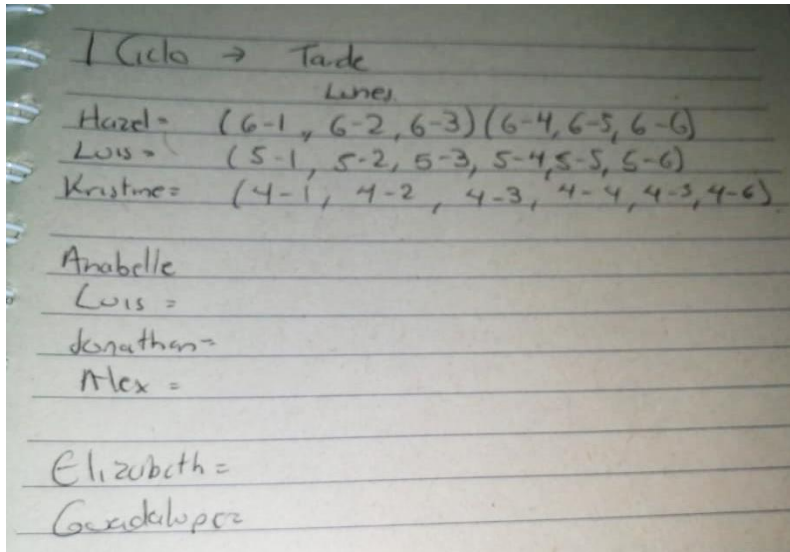 I Ciclo → Tarde
Lunes.
Hazel= (6-1, 6-2, 6-3) (6-4, 6-5, 6-6)
Luis= (5-1, 5-2, 5-3, 5-4, 5-5, 5-6)
Kristine= (4-1, 4-2, 4-3, 4-4, 4-5, 4-6)
Anabelle
Luis =
Jonathan=
Alex =
Elizabeth =
Guadalupe=